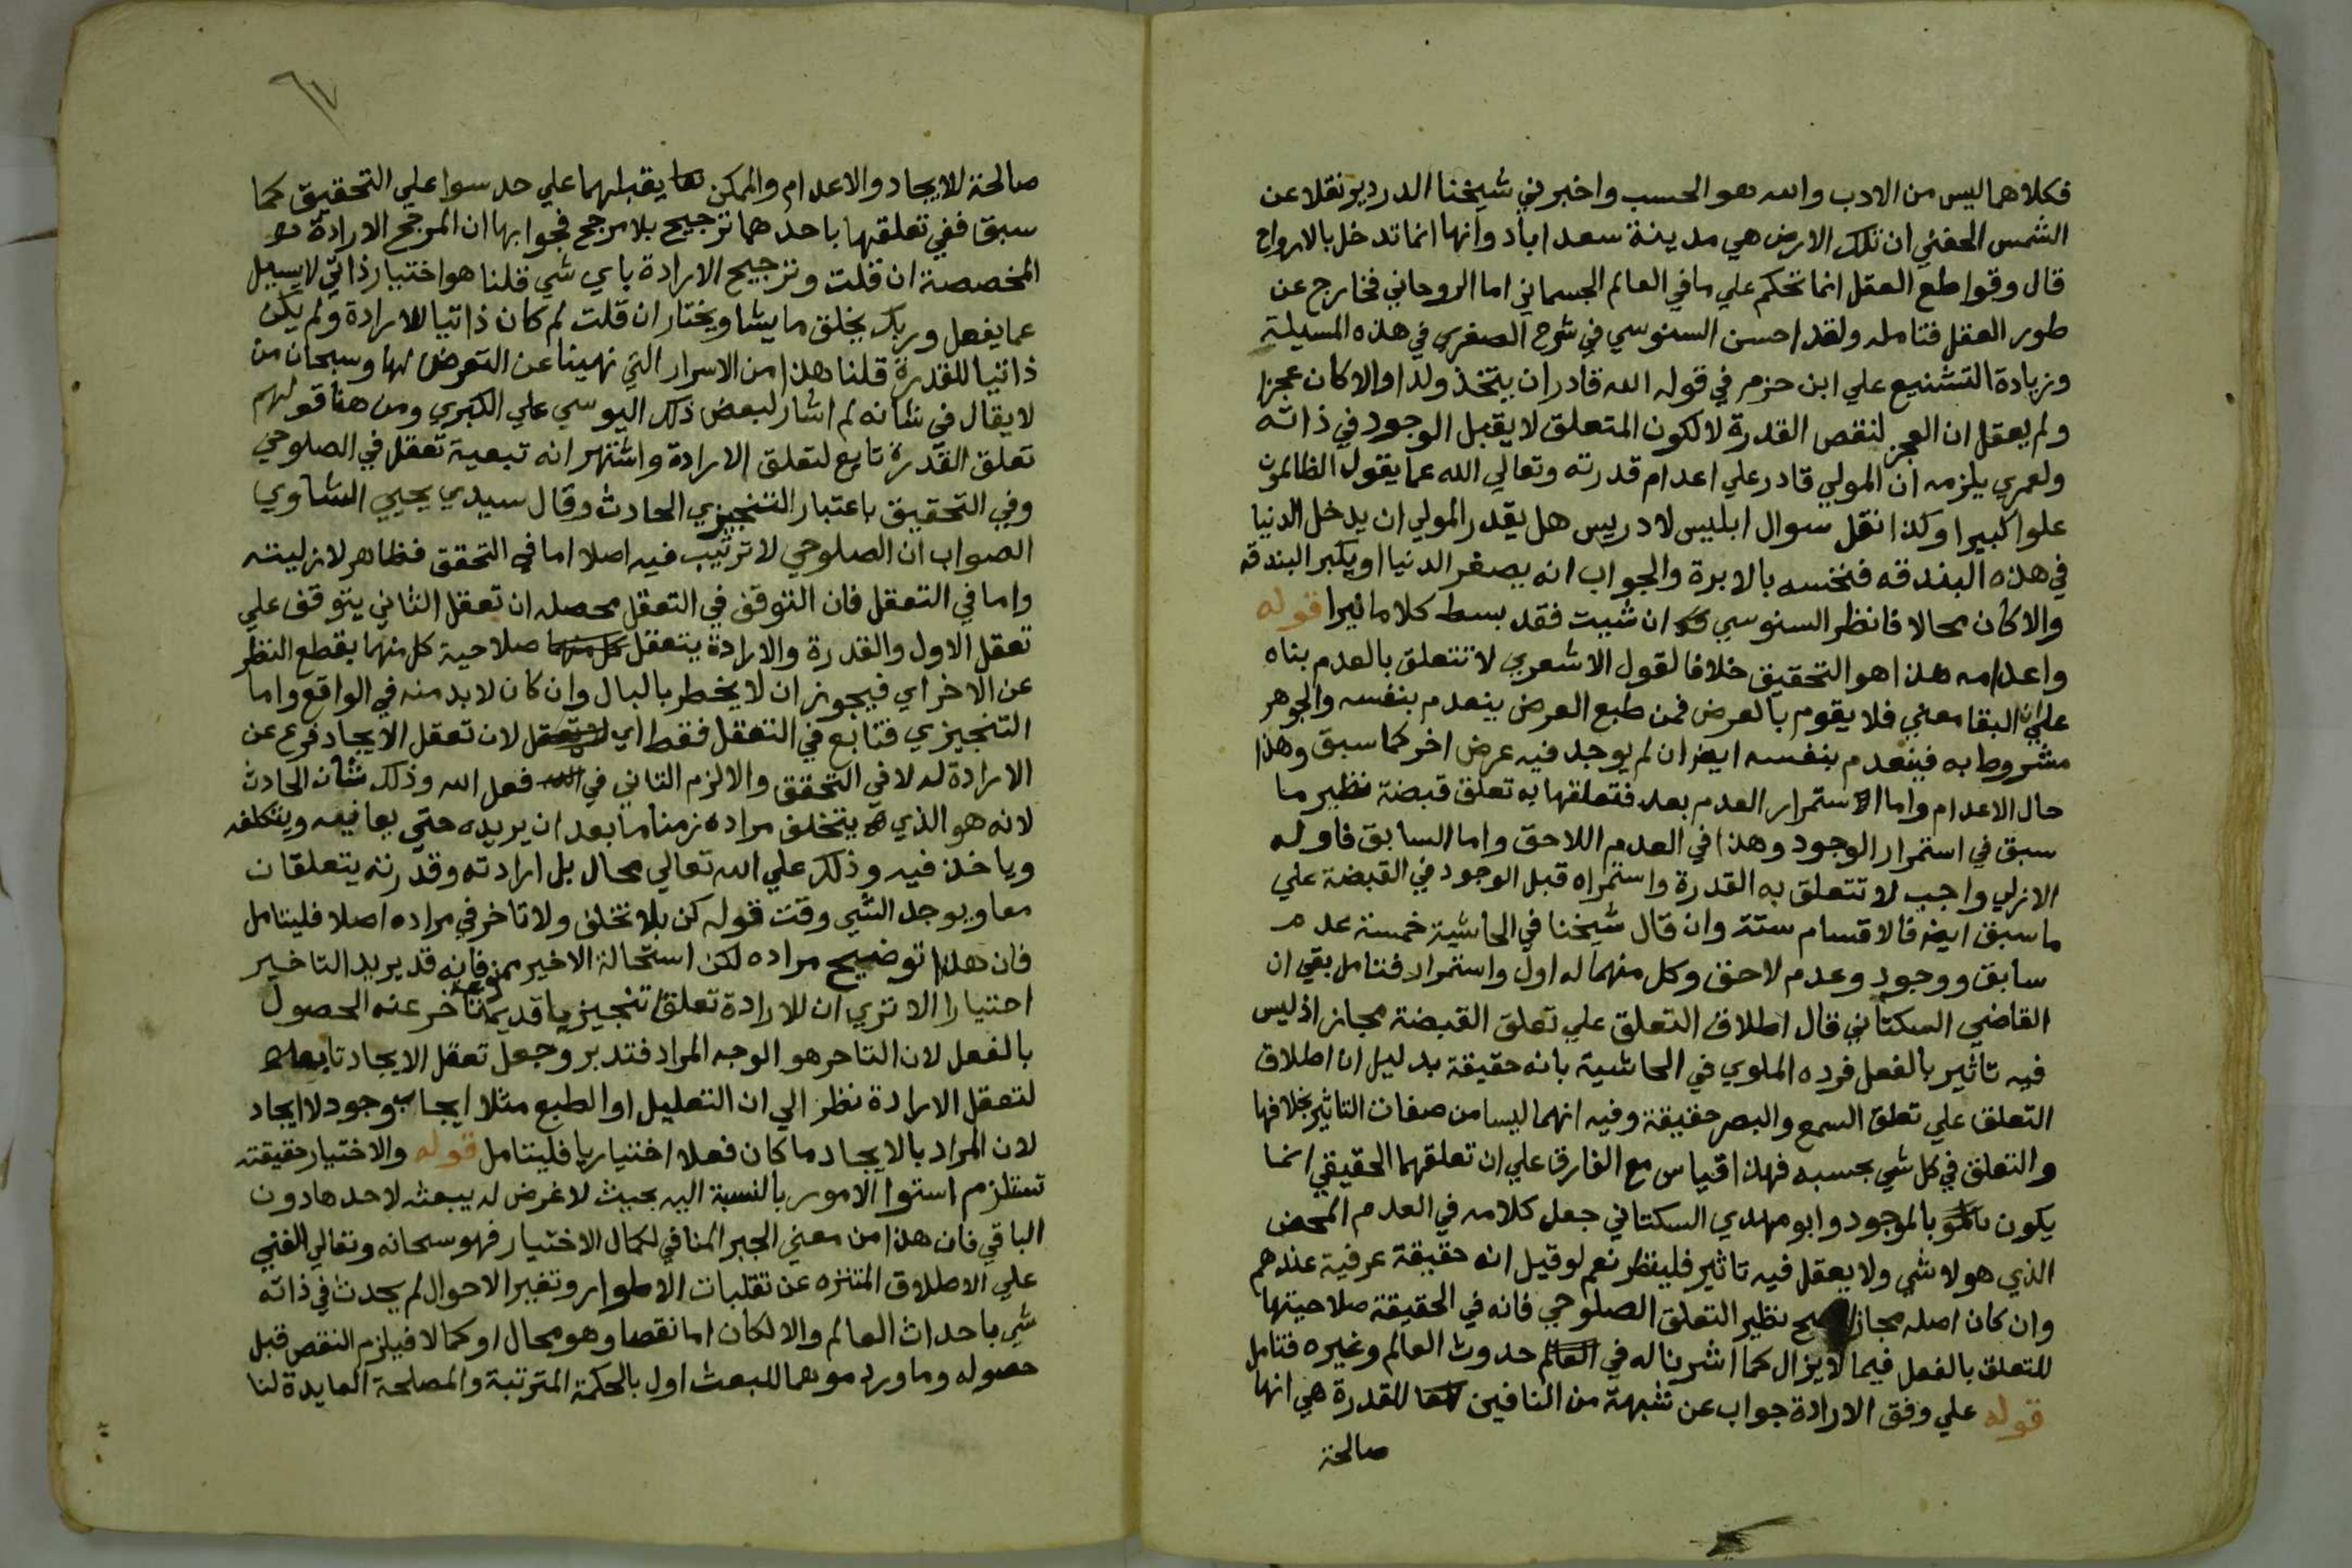 فكلاهما ليس من الادب والله هو الحسب واخبرني شيخنا الدردير نقلا عن
الشمس الحفني ان تلك الارض هي مدينة سعداباد وانها انما تدخل بالارواح
قال وقواطع العقل انما تحكم علي ما في العالم الجسماني اما الروحاني فخارج عن
طور العقل فتامله ولقد احسن السنوسي في شرح الصغري في هذه المسيلة
وزيادة التشنيع علي ابن حزم في قوله الله قادر ان يتخذ ولدا والا كان عجزا
ولم يعقل ان العجز لنقص القدرة لا لكون المتعلق لا يقبل الوجود في ذاته
ولعمري يلزمه ان المولي قادر علي اعدام قدرته وتعالي الله عما يقول الظالمون
علوا كبيرا وكذا نقل سوال ابليس لادريس هل يقدر المولي ان يدخل الدنيا
في هذه البندقه فنخسه بالابرة والجواب انه يصغر الدنيا او يكبر البندقه
والا كان محالا فانظر السنوسي ان شيت فقد بسط كلاما نيرا قوله
واعدامه هذا هو التحقيق خلافا لقول الاشعري لا تتعلق بالعدم بناه
علي ان البقا معني فلا يقوم بالعرض فمن طبع العرض ينعدم بنفسه والجوهر
مشروط به فينعدم بنفسه ايض ان لم يوجد فيه عرض اخر كما سبق وهذا
حال الاعدام واما استمرار العدم بعد فتعلقها به تعلق قبضة نظير ما
سبق في استمرار الوجود وهذا في العدم اللاحق واما السابق فاوله
الازلي واجب لا تتعلق به القدرة واستمراه قبل الوجود في القبضة علي
ما سبق ايض فالاقسام ستة وان قال شيخنا في الحاشية خمسة عدم
سابق ووجود وعدم لاحق وكل منهما له اول واستمرار فتامل بقي ان
القاضي السكتاني قال اطلاق التعلق علي تعلق القبضة مجاز اذ ليس
فيه تاثير بالفعل فرده الملوي في الحاشية بانه حقيقة بدليل ان اطلاق
التعلق علي تعلق السمع والبصر حقيقة وفيه انهما ليسا من صفات التاثير بخلافها
والتعلق في كل شي بحسبه فهذا قياس مع الفارق علي ان تعلقهما الحقيقي انما
يكون بالموجود وابو مهدي السكتاني جعل كلامه في العدم المحض
الذي هو لا شي ولا يعقل فيه تاثير فلينظر نعم لو قيل انه حقيقة عرفية عندهم
وان كان اصله مجازا صح نظير التعلق الصلوحي فانه في الحقيقة صلاحيتها
للتعلق بالفعل فيما لا يزال كما اشرنا له في حدوث العالم وغيره فتامل
قوله علي وفق الارادة جواب عن شبهة من النافين للقدرة هي انها
صالحة
٦٧
صالحة للايجاد والاعدام والممكن يقبلهما علي حد سوا علي التحقيق كما
سبق ففي تعلقها باحدهما ترجيح بلا مرجح فجوابها ان المرجح الارادة
المخصصة ان قلت وترجيح الارادة باي شي قلنا هو اختيار ذاتي لا يسيل
عما يفعل وربك يخلق ما يشا ويختار ان قلت لم كان ذاتيا للارادة ولم يكن
ذاتيا للقدرة قلنا هذا من الاسرار التي نهينا عن التعرض لها وسبحان من
لا يقال في شانه لم اشار لبعض ذلك اليوسي علي الكبري ومن هنا قولهم
تعلق القدرة تابع لتعلق الارادة واشتهر انه تبعية تعقل في الصلوحي
وفي التحقيق باعتبار التنجيزي الحادث وقال سيدي يحيي الشاوي
الصواب ان الصلوحي لا ترتيب فيه اصلا اما في التحقق فظاهر لازليته
واما في التعقل فان التوقف في التعقل محصله ان تعقل الثاني يتوقف علي
تعقل الاول والقدرة والارادة يتعقل صلاحية كل منهما بقطع النظر
عن الاخر اي فيجوز ان لا يخطر بالبال وان كان لا بد منه في الواقع واما
التنجيزي فتابع في التعقل فقط اي لان تعقل الايجاد فرع عن
الارادة له لا في التحقق والا لزم التاني في فعل الله وذلك شان الحادث
لانه هو الذي يتخلف مراده زمنا ما بعد ان يريده حتي يعافيه ويتكلفه
وياخذ فيه وذلك علي الله تعالي محال بل ارادته وقدرته يتعلقان
معا ويوجد الشي وقت قوله كن بلا تخلف ولا تاخر في مراده اصلا فليتامل
فان هذا توضيح مراده لكن استحالة الاخير ممنوعة فانه قد يريد التاخير
اختيارا الا تري ان للارادة تعلقا تنجيزيا قديما تاخر عنه الحصول
بالفعل لان التاخر هو الوجه المراد فتدبر وجعل تعقل الايجاد تابعا
لتعقل الارادة نظر الي ان التعليل او الطبع مثلا ايجاب وجود لا ايجاد
لان المراد بالايجاد ما كان فعلا اختياريا فليتامل قوله والاختيار حقيقته
تستلزم استوا الامور بالنسبة اليه بحيث لا غرض له يبعثه لاحدها دون
الباقي فان هذا من معني الجبر المنافي لكمال الاختيار فهو سبحانه وتعالي الغني
علي الاطلاق المتنزه عن تقلبات الاطوار وتغير الاحوال لم يحدث في ذاته
شي باحداث العالم والا لكان اما نقصا وهو محال او كمالا فيلزم النقص قبل
حصوله وما ورد موهما للبعث اول بالحكمة المترتبة والمصلحة العايدة لنا